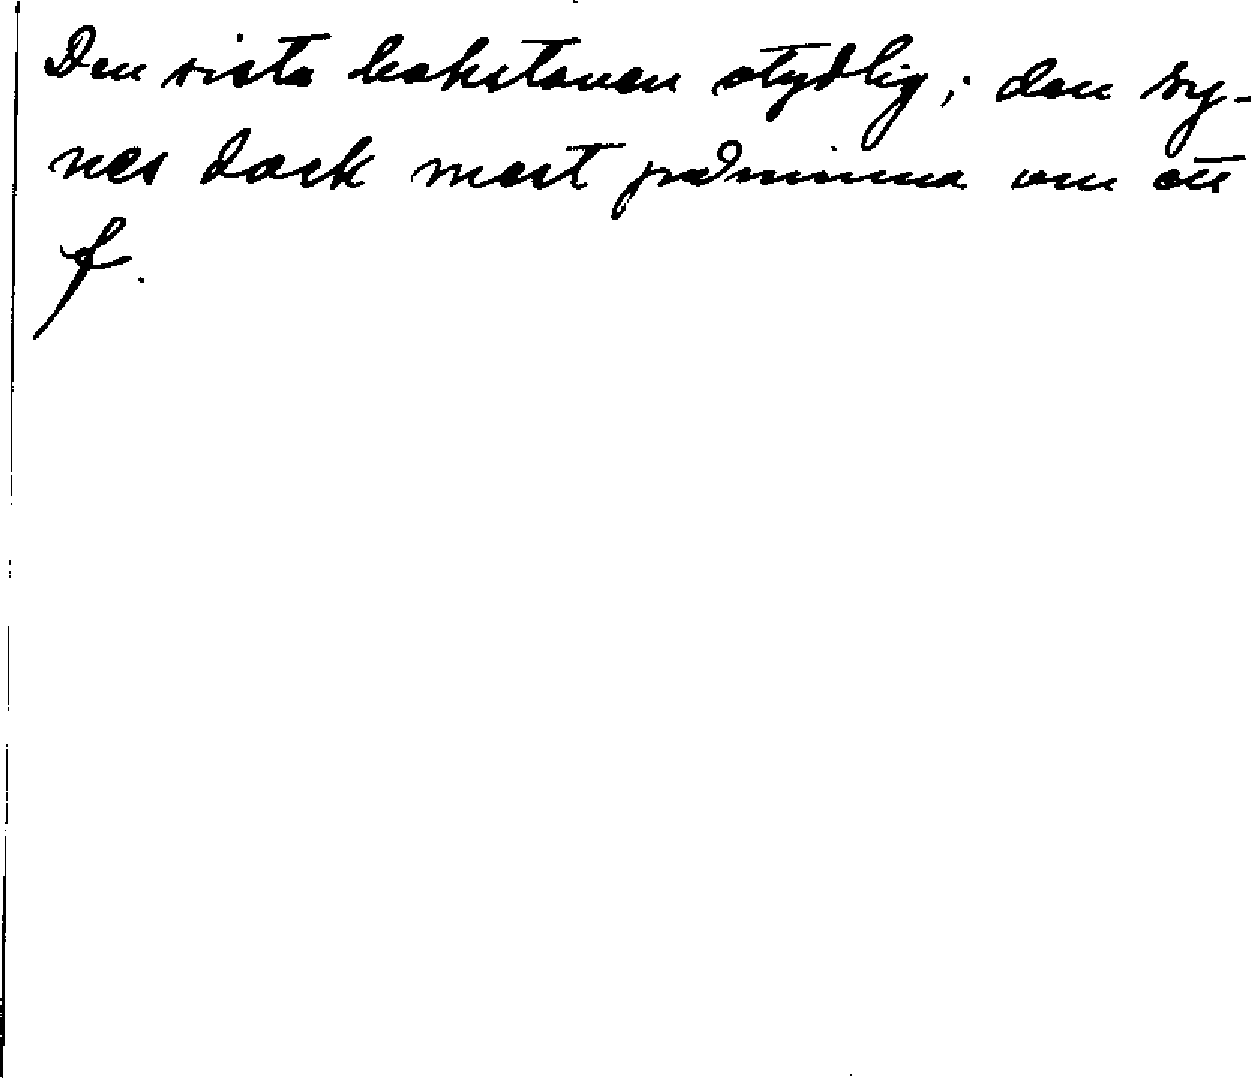 Den sista bokstaven otydlig; den sy-
nes dock mest påminna om ett
f.